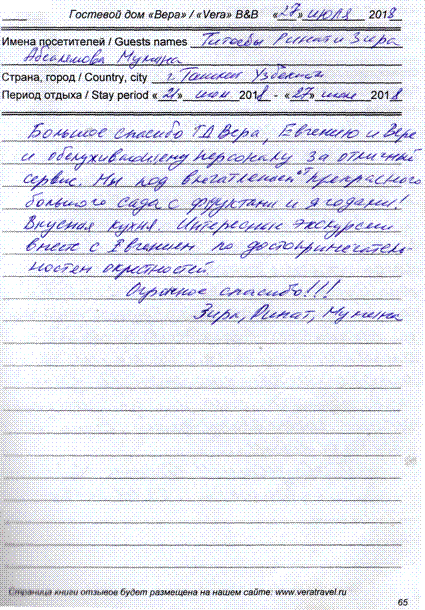 Гостевой дом «Вера» / «Vera» B&B «27» июля 2018
Имена посетителей / Guests names Титовы Ринат и Зира
Абсалямова Мунина
Страна, город / Country, city г. Ташкент Узбекистан
Период отдыха / Stay period «21» июля 2018 - «27» июля 2018
Большое спасибо ГД Вера, Евгению и Вере
и обслужившему персоналу за отличный
сервис. Мы под впечатлением от прекрасного
большого сада с фруктами и ягодами!
Вкусная кухня. Интересные экскурсии
вместе с Евгением по достопримечатель-
ностям окрестностей
Огромное спасибо!!!
Зира, Ринат, Мунина
Страница книги отзывов будет размещена на нашем сайте: www.veratravel.ru
65